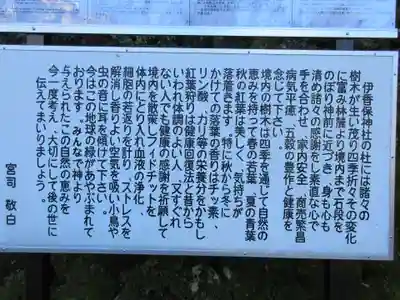 伊香保神社の杜には諸々の
樹木が生い茂り四季折々その変化
に富み林蔭より境内まで石段を
のぼり神前に近づき、身も心も
清め諸々の感謝をし素直な心で
手を合わせ、家内安全、商売繁昌
病気平癒、五穀の豊作と健康を
念じて下さい。
境内の樹木は四季を通じて自然の
恵みを授わって春の若葉、夏の青葉
秋の紅葉は美くしく、気持ちが
落着きます。特に秋から冬に
かけての落葉の香りはチッ素、
リン酸、カリ等の栄養分をかもし
紅葉狩りは健康回復法と昔から
いわれ体調のよい人、又すぐれ
ない人でも健康の感謝を祈願して
境内を散策しフィトンチットを
体内へとり入れ血液の浄化
細胞の若返りを計り、ストレスを
解消し香りよい空気を吸い小鳥や
虫の音に耳を傾けて下さい。
今はこの地球の緑があやぶまれて
おります。みんなで神より
与えられたこの自然の恵みを
今一度考え、大切にして後の世に
伝えてまいりましょう。
宮司 敬白